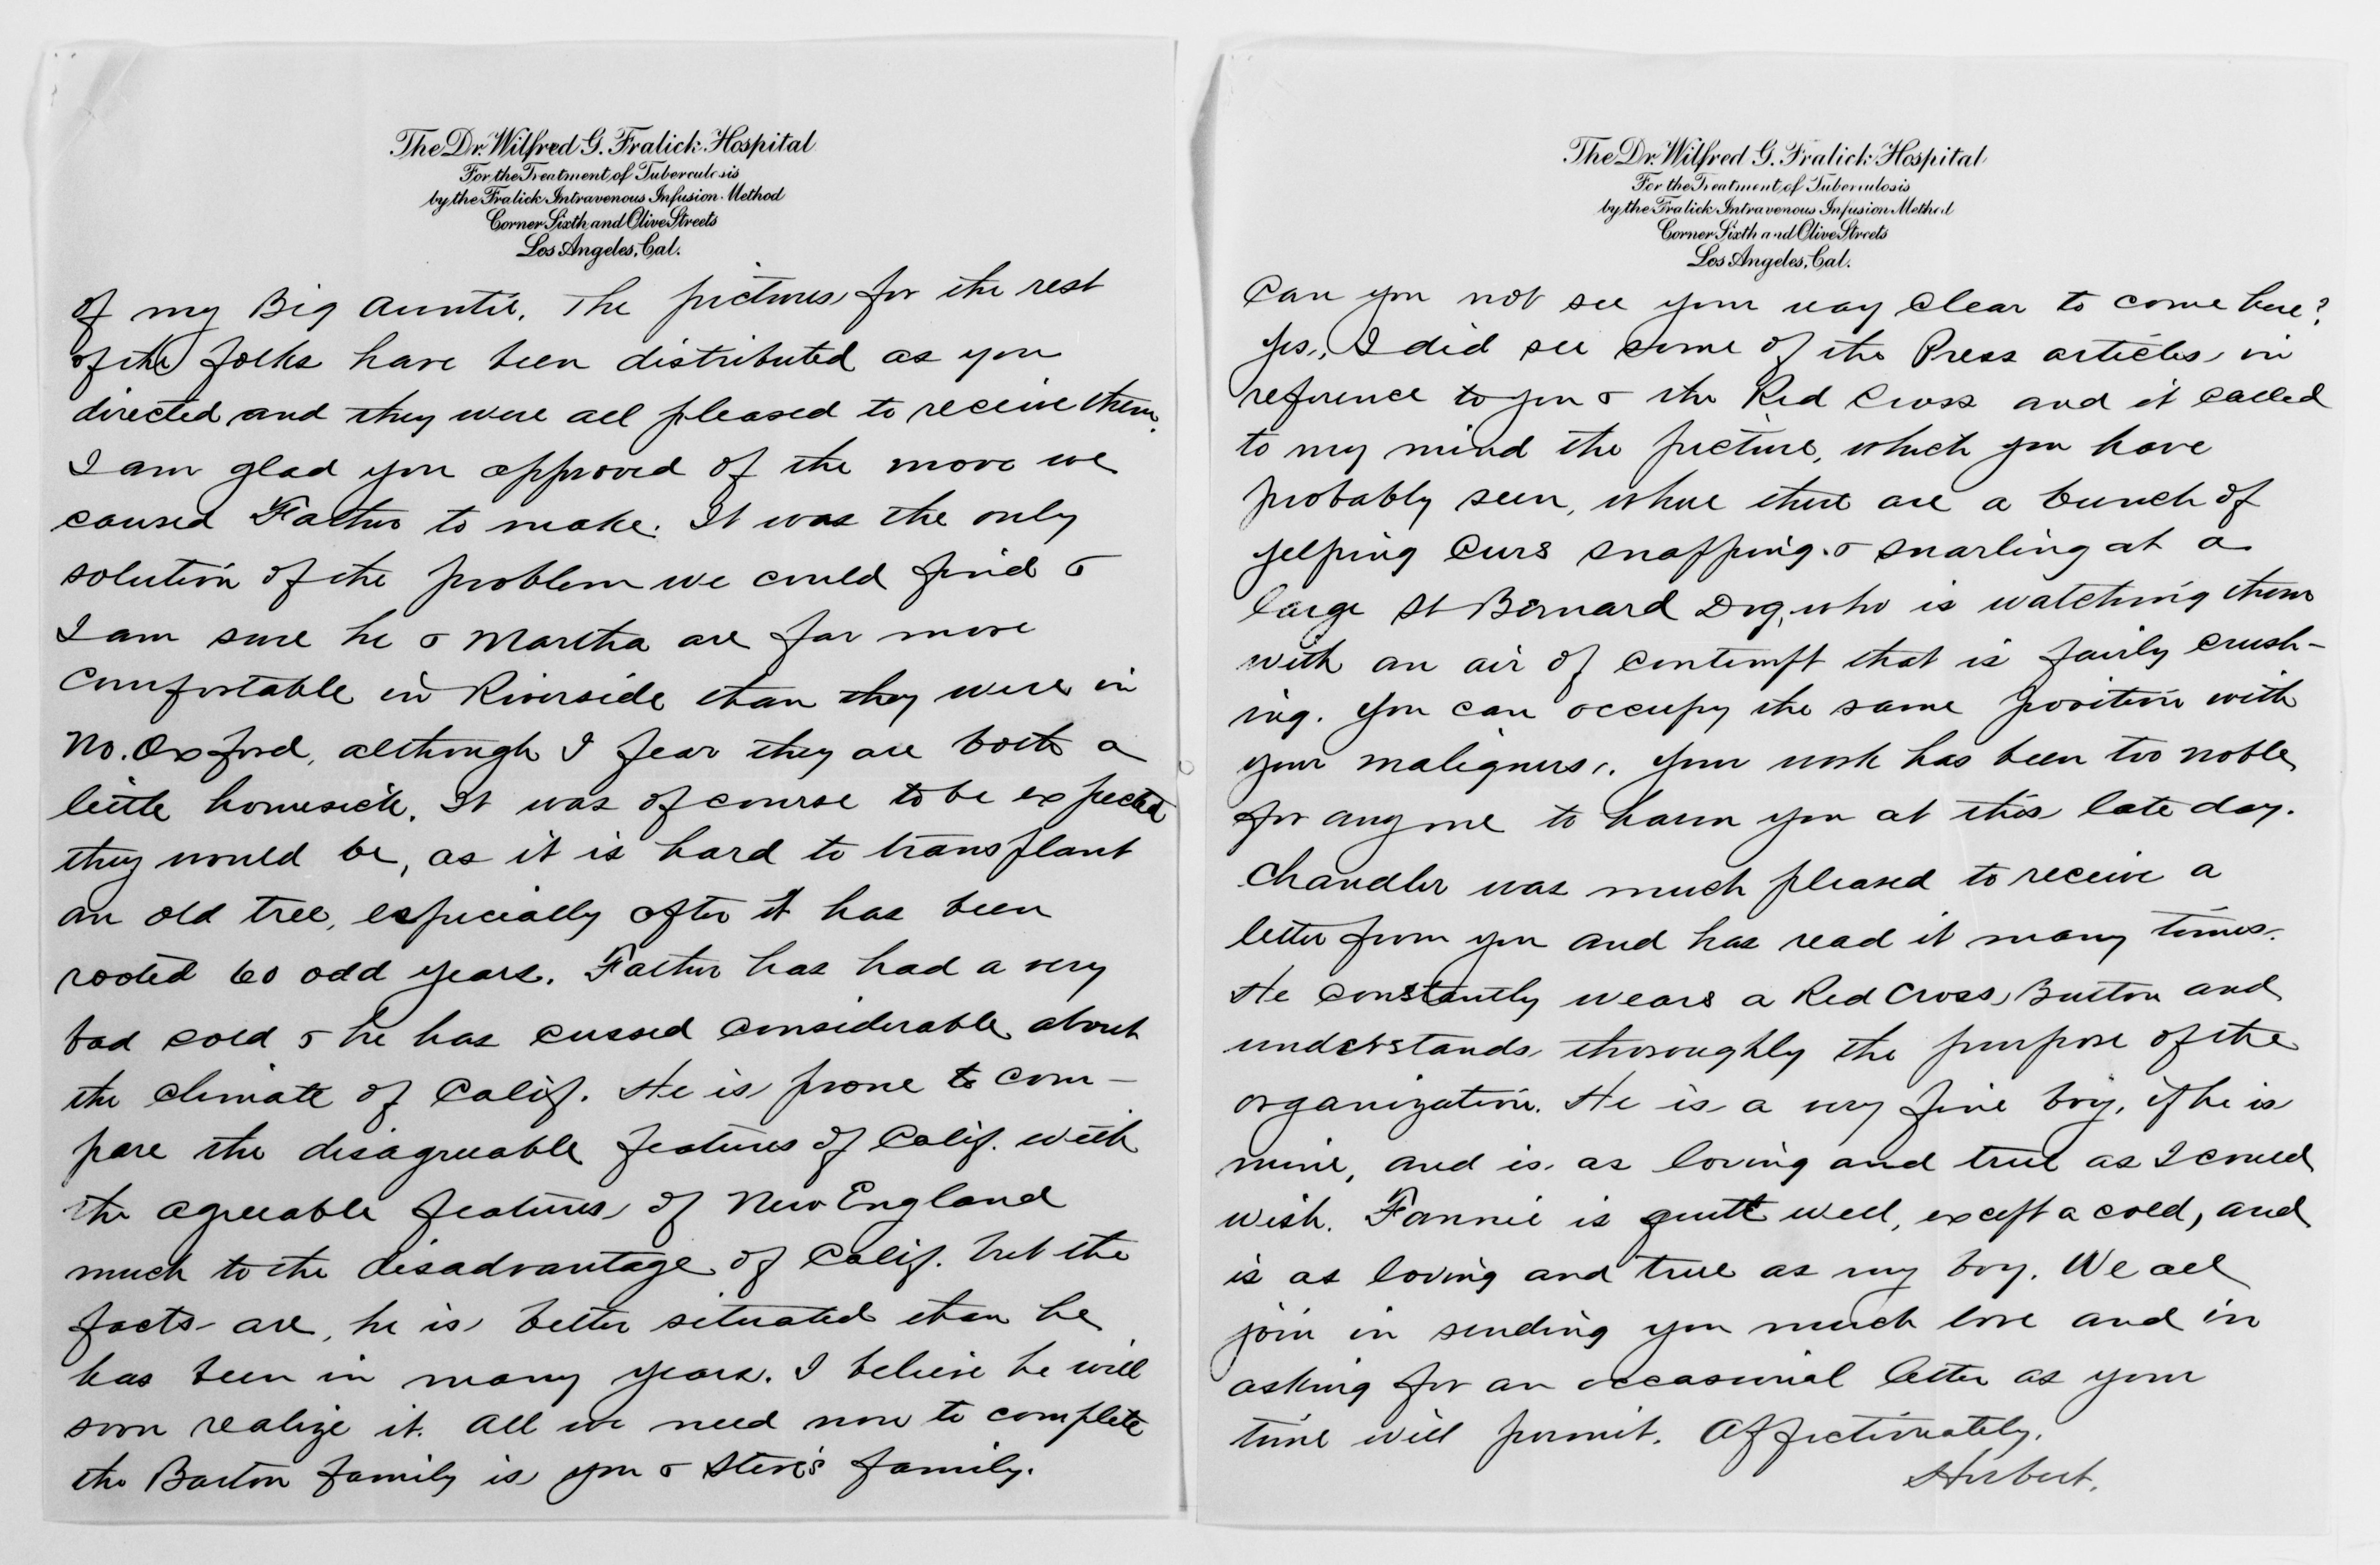 The Dr. Wilfred G. Fralick Hospital
For the Treatment of Tuberculosis
by the Fralick Intravenous Infusion Method
Corner Sixth and Olive Streets
Los Angeles, Cal.
of my Big Auntie. The pictures for the rest
of the folks have been distributed as you
directed and they were all pleased to receive them.
I am glad you approved of the move we
caused Father to make. It was the only
solution of the problem we could find &
I am sure he & Martha are far more
comfortable in Riverside than they were in
No. Oxford, although I fear they are both a
little homesick. It was of course to be expected
they would be, as it is hard to transplant
an old tree, especially after it has been
rooted 60 odd years. Father has had a very
bad cold & he has cussed considerable about
the climate of Calif. He is prone to com-
pare the disagreeable features of Calif. with
the agreeable features of New England
much to the disadvantage of Calif. but the
facts are, he is better situated than he
has been in many years. I believe he will
soon realize it. All we need now to complete
the Barton family is you & Steve's family.
The Dr. Wilfred G. Fralick Hospital
For the Treatment of Tuberculosis
by the Fralick Intravenous Infusion Method
Corner Sixth and Olive Streets
Los Angeles, Cal.
Can you not see your way clear to come here?
Yes, I did see some of the Press articles in
reference to you & the Red Cross and it called
to my mind the picture, which you have
probably seen, where there are a bunch of
yelping curs snapping & snarling at a
large St Bernard Dog, who is watching them
with an air of contempt that is fairly crush-
ing. You can occupy the same position with
your maligners. Your work has been too noble
for anyone to harm you at this late day.
Chandler was much pleased to receive a
letter from you and has read it many times.
He constantly wears a Red Cross Button and
understands thoroughly the purpose of the
organization. He is a very fine boy, if he is
mine, and is as loving and true as I could
wish. Fannie is quite well, except a cold, and
is as loving and true as my boy. We all
join in sending you much love and in
asking for an occasional letter as your
time will permit. Affectionately,
Herbert.